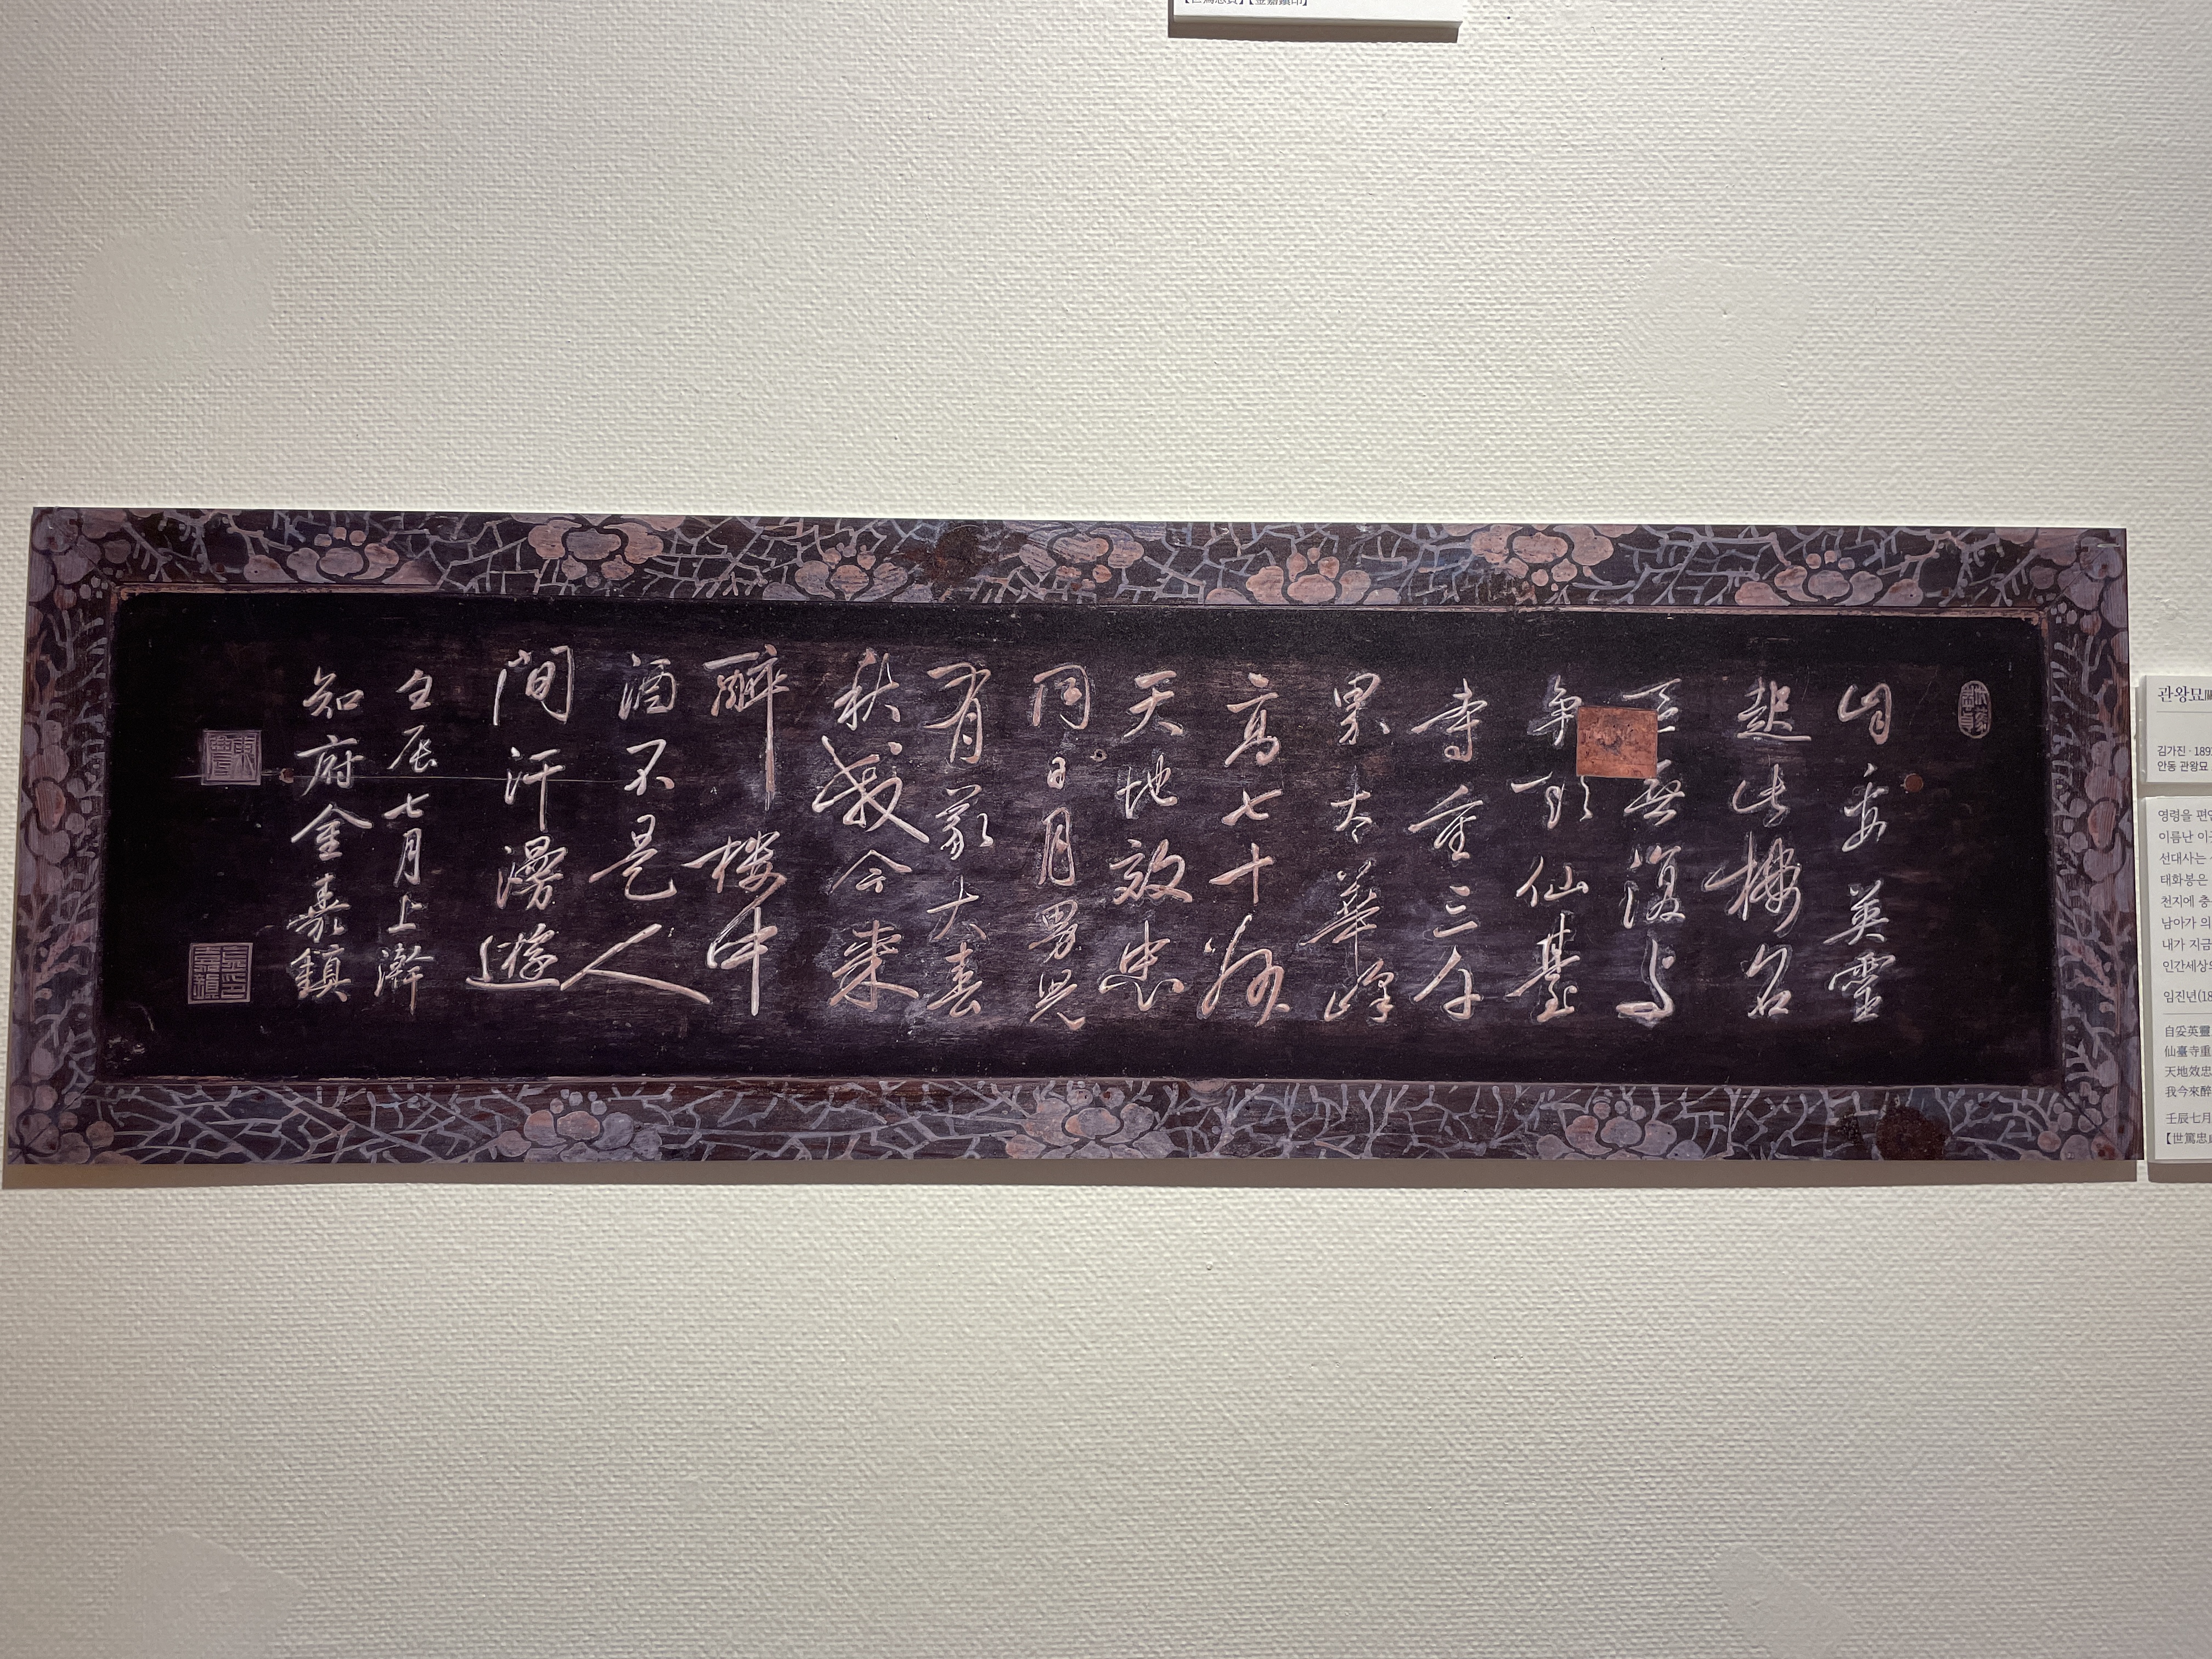 世篤忠貞
自妥英靈
起此樓名
無復與
爭頭仙臺
寺重三千
界太華峰
高七十州
天地效忠
同日月男兒
有義大春
秋我今來
醉樓中
酒不是人
間汗漫遊
壬辰七月上澣
知府金嘉鎭
東農
金嘉鎭印
관왕묘
김가진 · 189
안동 관왕묘
영령을 편안
이름난 이
선대사는
태화봉은
천지에 충
남아가 의
내가 지금
인간세상
임진년(18
自妥英靈
仙臺寺重
天地效忠
我今來醉
壬辰七月
【世篤忠